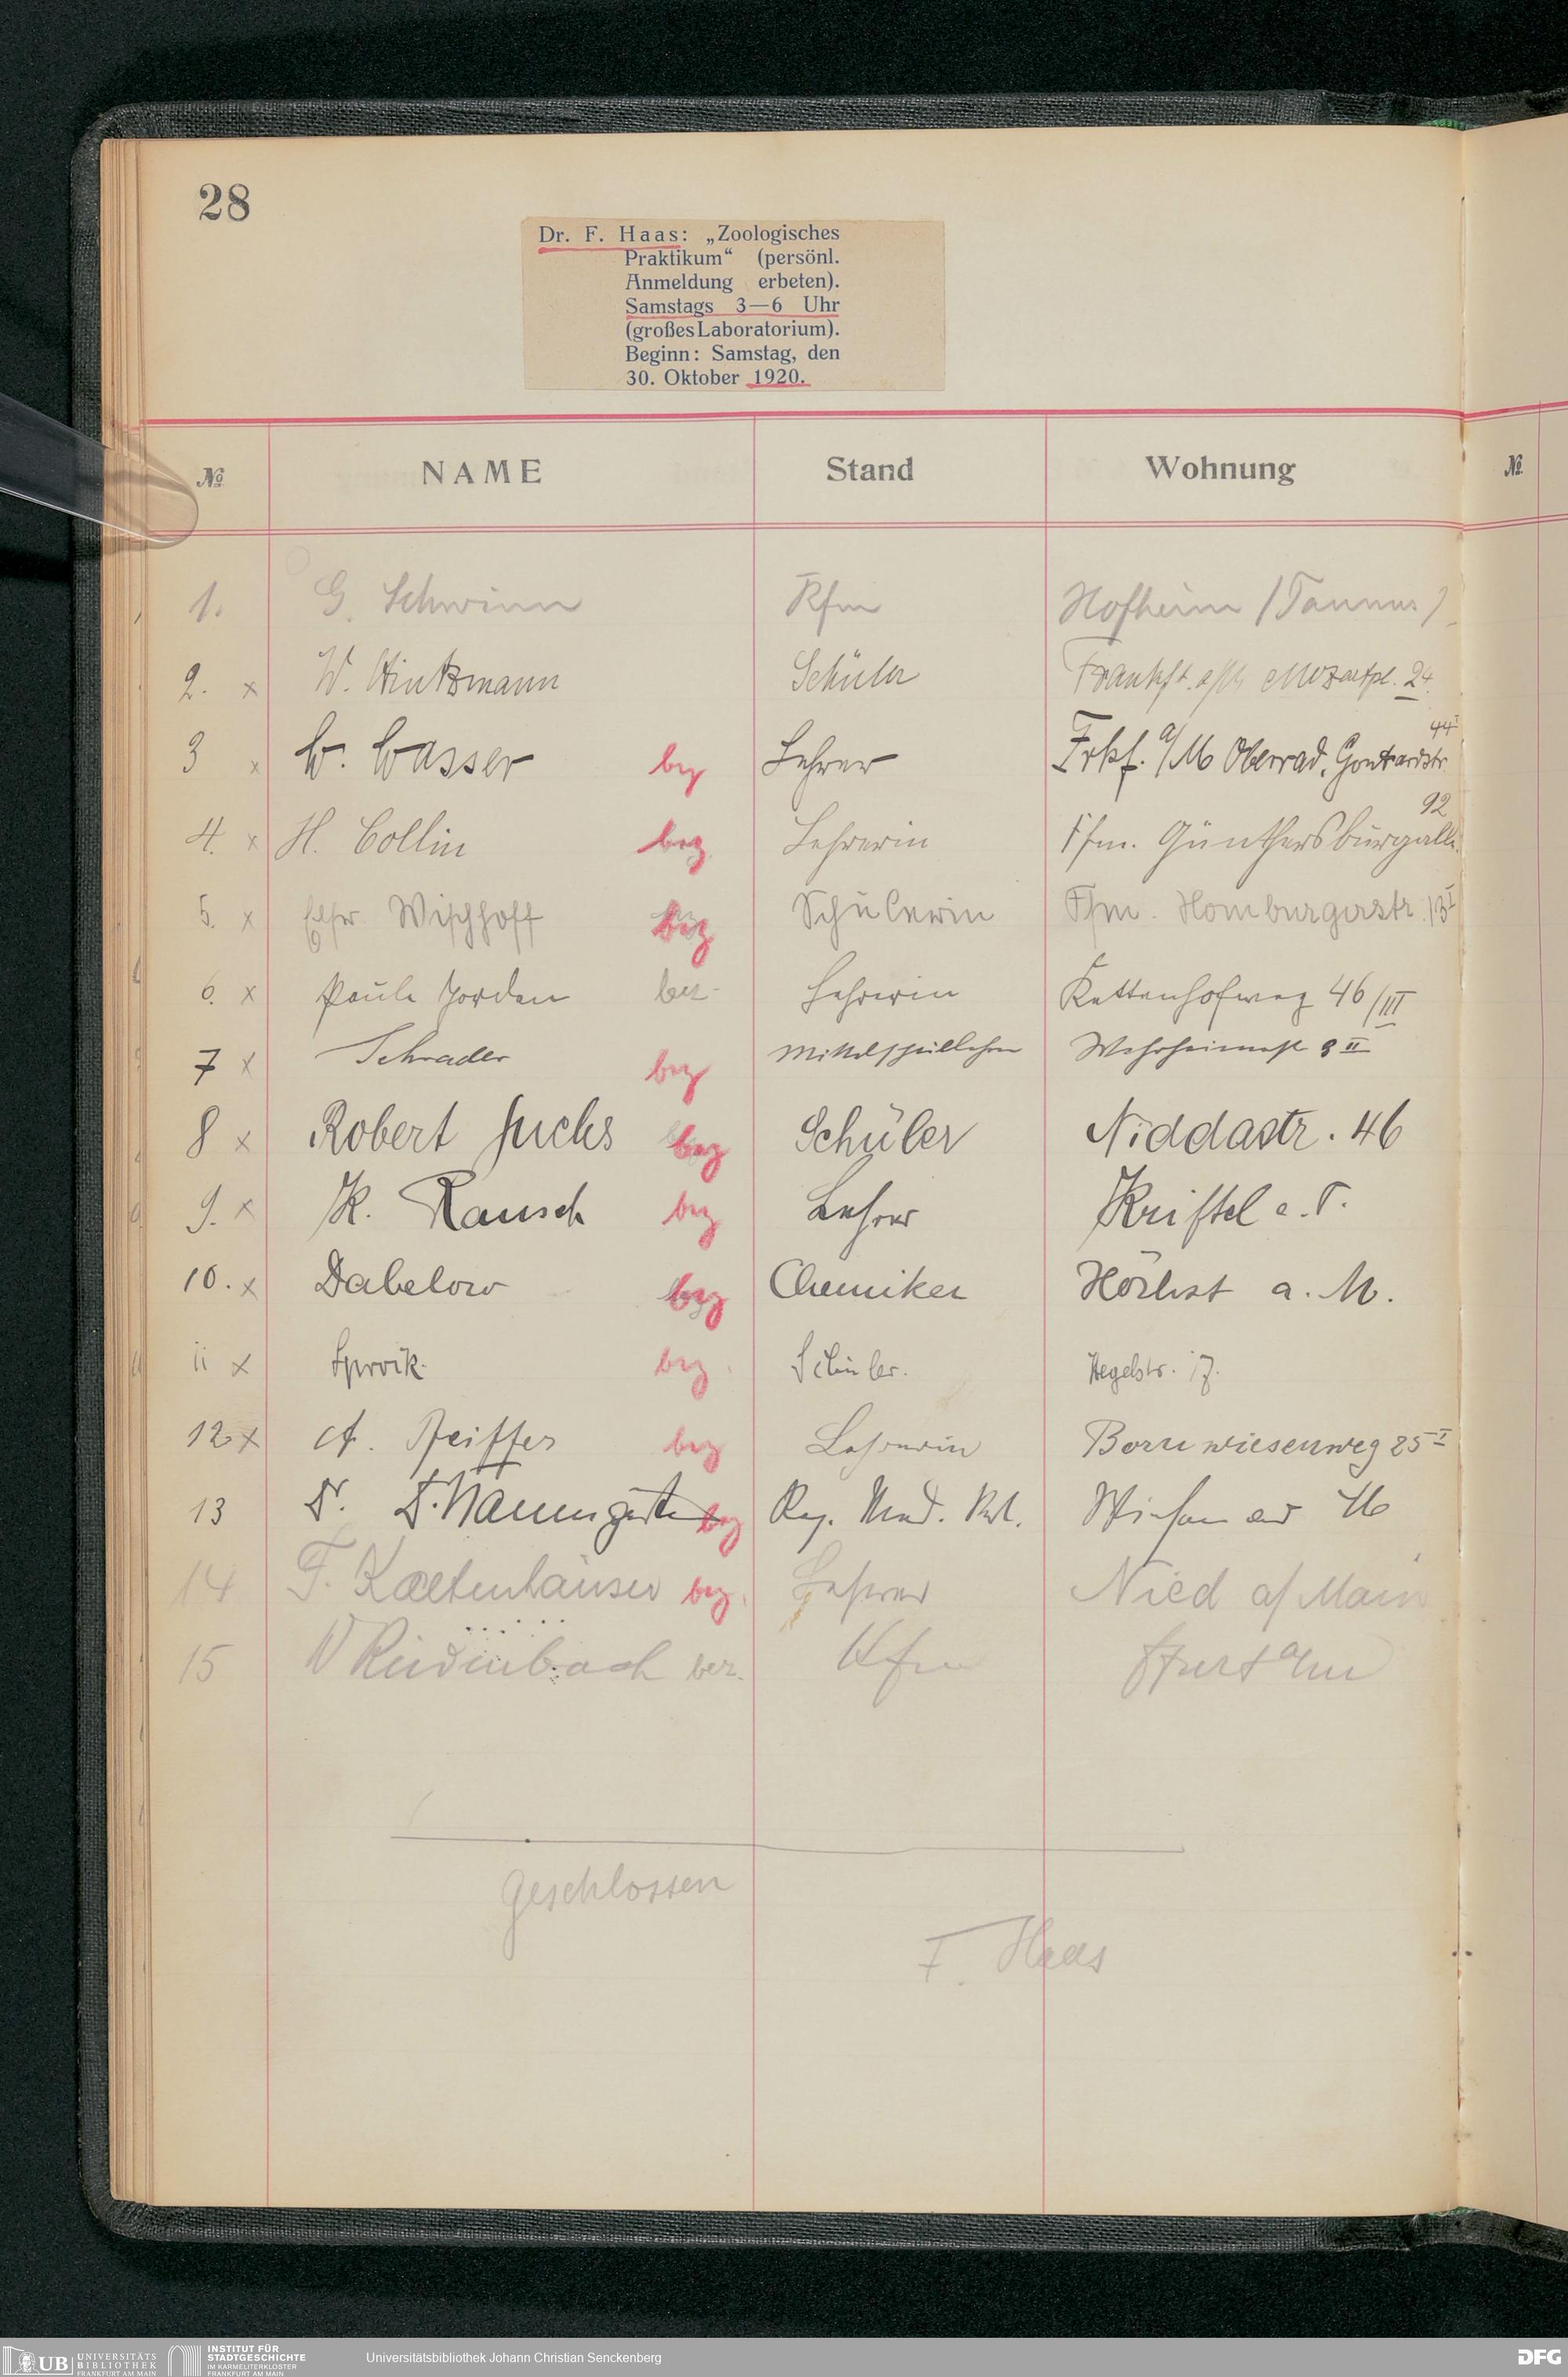 28
Dr. F. Haas: „Zoologisches
Praktikum“ (persönl.
Anmeldung erbeten).
Samstags 3—6 Uhr
(großes Laboratorium).
Beginn: Samstag, den
30. Oktober 1920.
№ NAME Stand Wohnung №
1. G. Schwinn Kfm Hofheim (Taunus)
2. x W. Hintzmann Schüler Frankft. a/M Mozartpl. 24.
3 x W. Wasser bez Lehrer Frkf. a/M Oberrad, Gontardstr. 44 I
4. x H. Collin bez. Lehrerin Ffm. Günthersburgalle. 92
5. x Wischhoff bez Schülerin Ffm. Homburgerstr. 13 I
6. x Paula Jordan bez. Lehrerin Kettenhofweg 46/III
7 x Schrader bez Mittelschullehrer 8 II
8 x Robert Fuchs bez Schüler Niddastr. 46
9. x K. Rausch bez Lehrer Kriftel a. T.
10. x Dabelow bez Chemiker Höchst a. M.
11 x bez Schüler. Hegelstr. 17.
12 x A. Pfeiffer bez Lehrerin Bornwiesenweg 25 I
13 Dr. bez Reg.
14 F. Kaltenhäuser bez. Lehrer Nied a/Main
15 W bez. Kfm
geschlossen
F. Haas
UB UNIVERSITÄTS
BIBLIOTHEK
FRANKFURT AM MAIN
INSTITUT FÜR
STADTGESCHICHTE
IM KARMELITERKLOSTER
FRANKFURT AM MAIN
Universitätsbibliothek Johann Christian Senckenberg
DFG